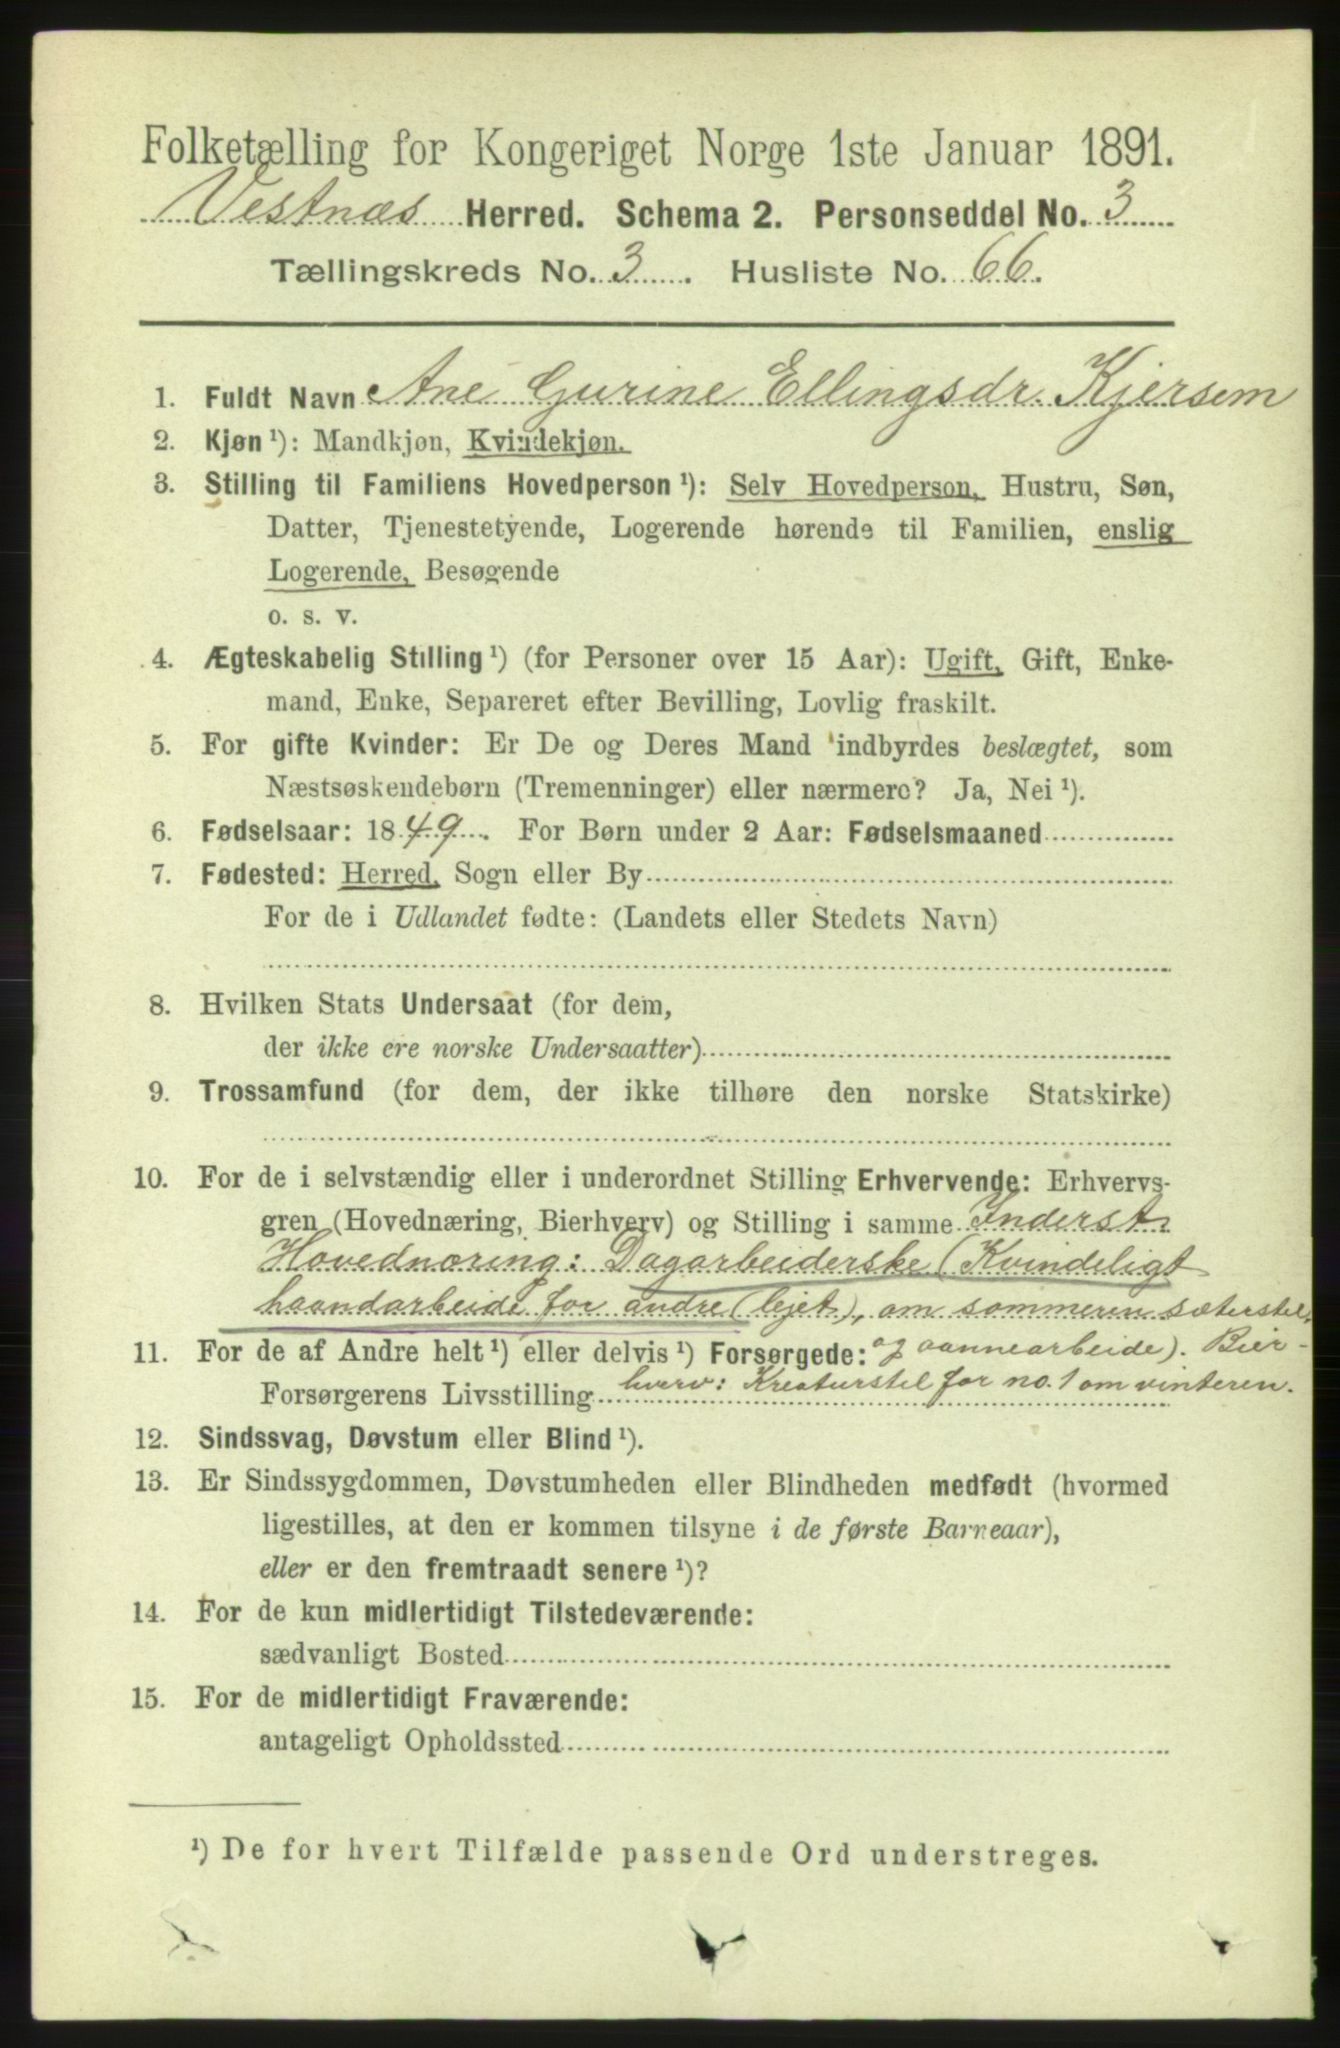 Folketælling for Kongeriget Norge 1ste Januar 1891.
Vestnæs Herred. Schema 2. Personseddel No. 3
Tællingskreds No. 3. Husliste No. 66.
1. Fuldt Navn Ane Gurine Ellingsdr. Kjersem
2. Kjøn ¹): Mandkjøn, Kvindekjøn.
3. Stilling til Familiens Hovedperson ¹): Selv Hovedperson, Hustru, Søn,
Datter, Tjenestetyende, Logerende hørende til Familien, enslig
Logerende, Besøgende
o. s. v.
4. Ægteskabelig Stilling ¹) (for Personer over 15 Aar): Ugift, Gift, Enke-
mand, Enke, Separeret efter Bevilling, Lovlig fraskilt.
5. For gifte Kvinder: Er De og Deres Mand indbyrdes beslægtet, som
Næstsøskendebørn (Tremenninger) eller nærmere? Ja, Nei ¹).
6. Fødselsaar: 1849. For Børn under 2 Aar: Fødselsmaaned
7. Fødested: Herred, Sogn eller By
For de i Udlandet fødte: (Landets eller Stedets Navn)
8. Hvilken Stats Undersaat (for dem,
der ikke ere norske Undersaatter)
9. Trossamfund (for dem, der ikke tilhøre den norske Statskirke)
10. For de i selvstændig eller i underordnet Stilling Erhvervende: Erhvervs-
gren (Hovednæring, Bierhverv) og Stilling i samme Inderst.
Hovednæring: Dagarbeiderske (Kvindeligt
haandarbeide for andre (lejet), om sommeren sæterstel
11. For de af Andre helt ¹) eller delvis ¹) Forsørgede: og aannearbeide). Bier-
Forsørgerens Livsstilling hverv: Kreaturstel for no. 1 om vinteren.
12. Sindssvag, Døvstum eller Blind ¹).
13. Er Sindssygdommen, Døvstumheden eller Blindheden medfødt (hvormed
ligestilles, at den er kommen tilsyne i de første Barneaar),
eller er den fremtraadt senere ¹)?
14. For de kun midlertidigt Tilstedeværende:
sædvanligt Bosted
15. For de midlertidigt Fraværende:
antageligt Opholdssted
¹) De for hvert Tilfælde passende Ord understreges.